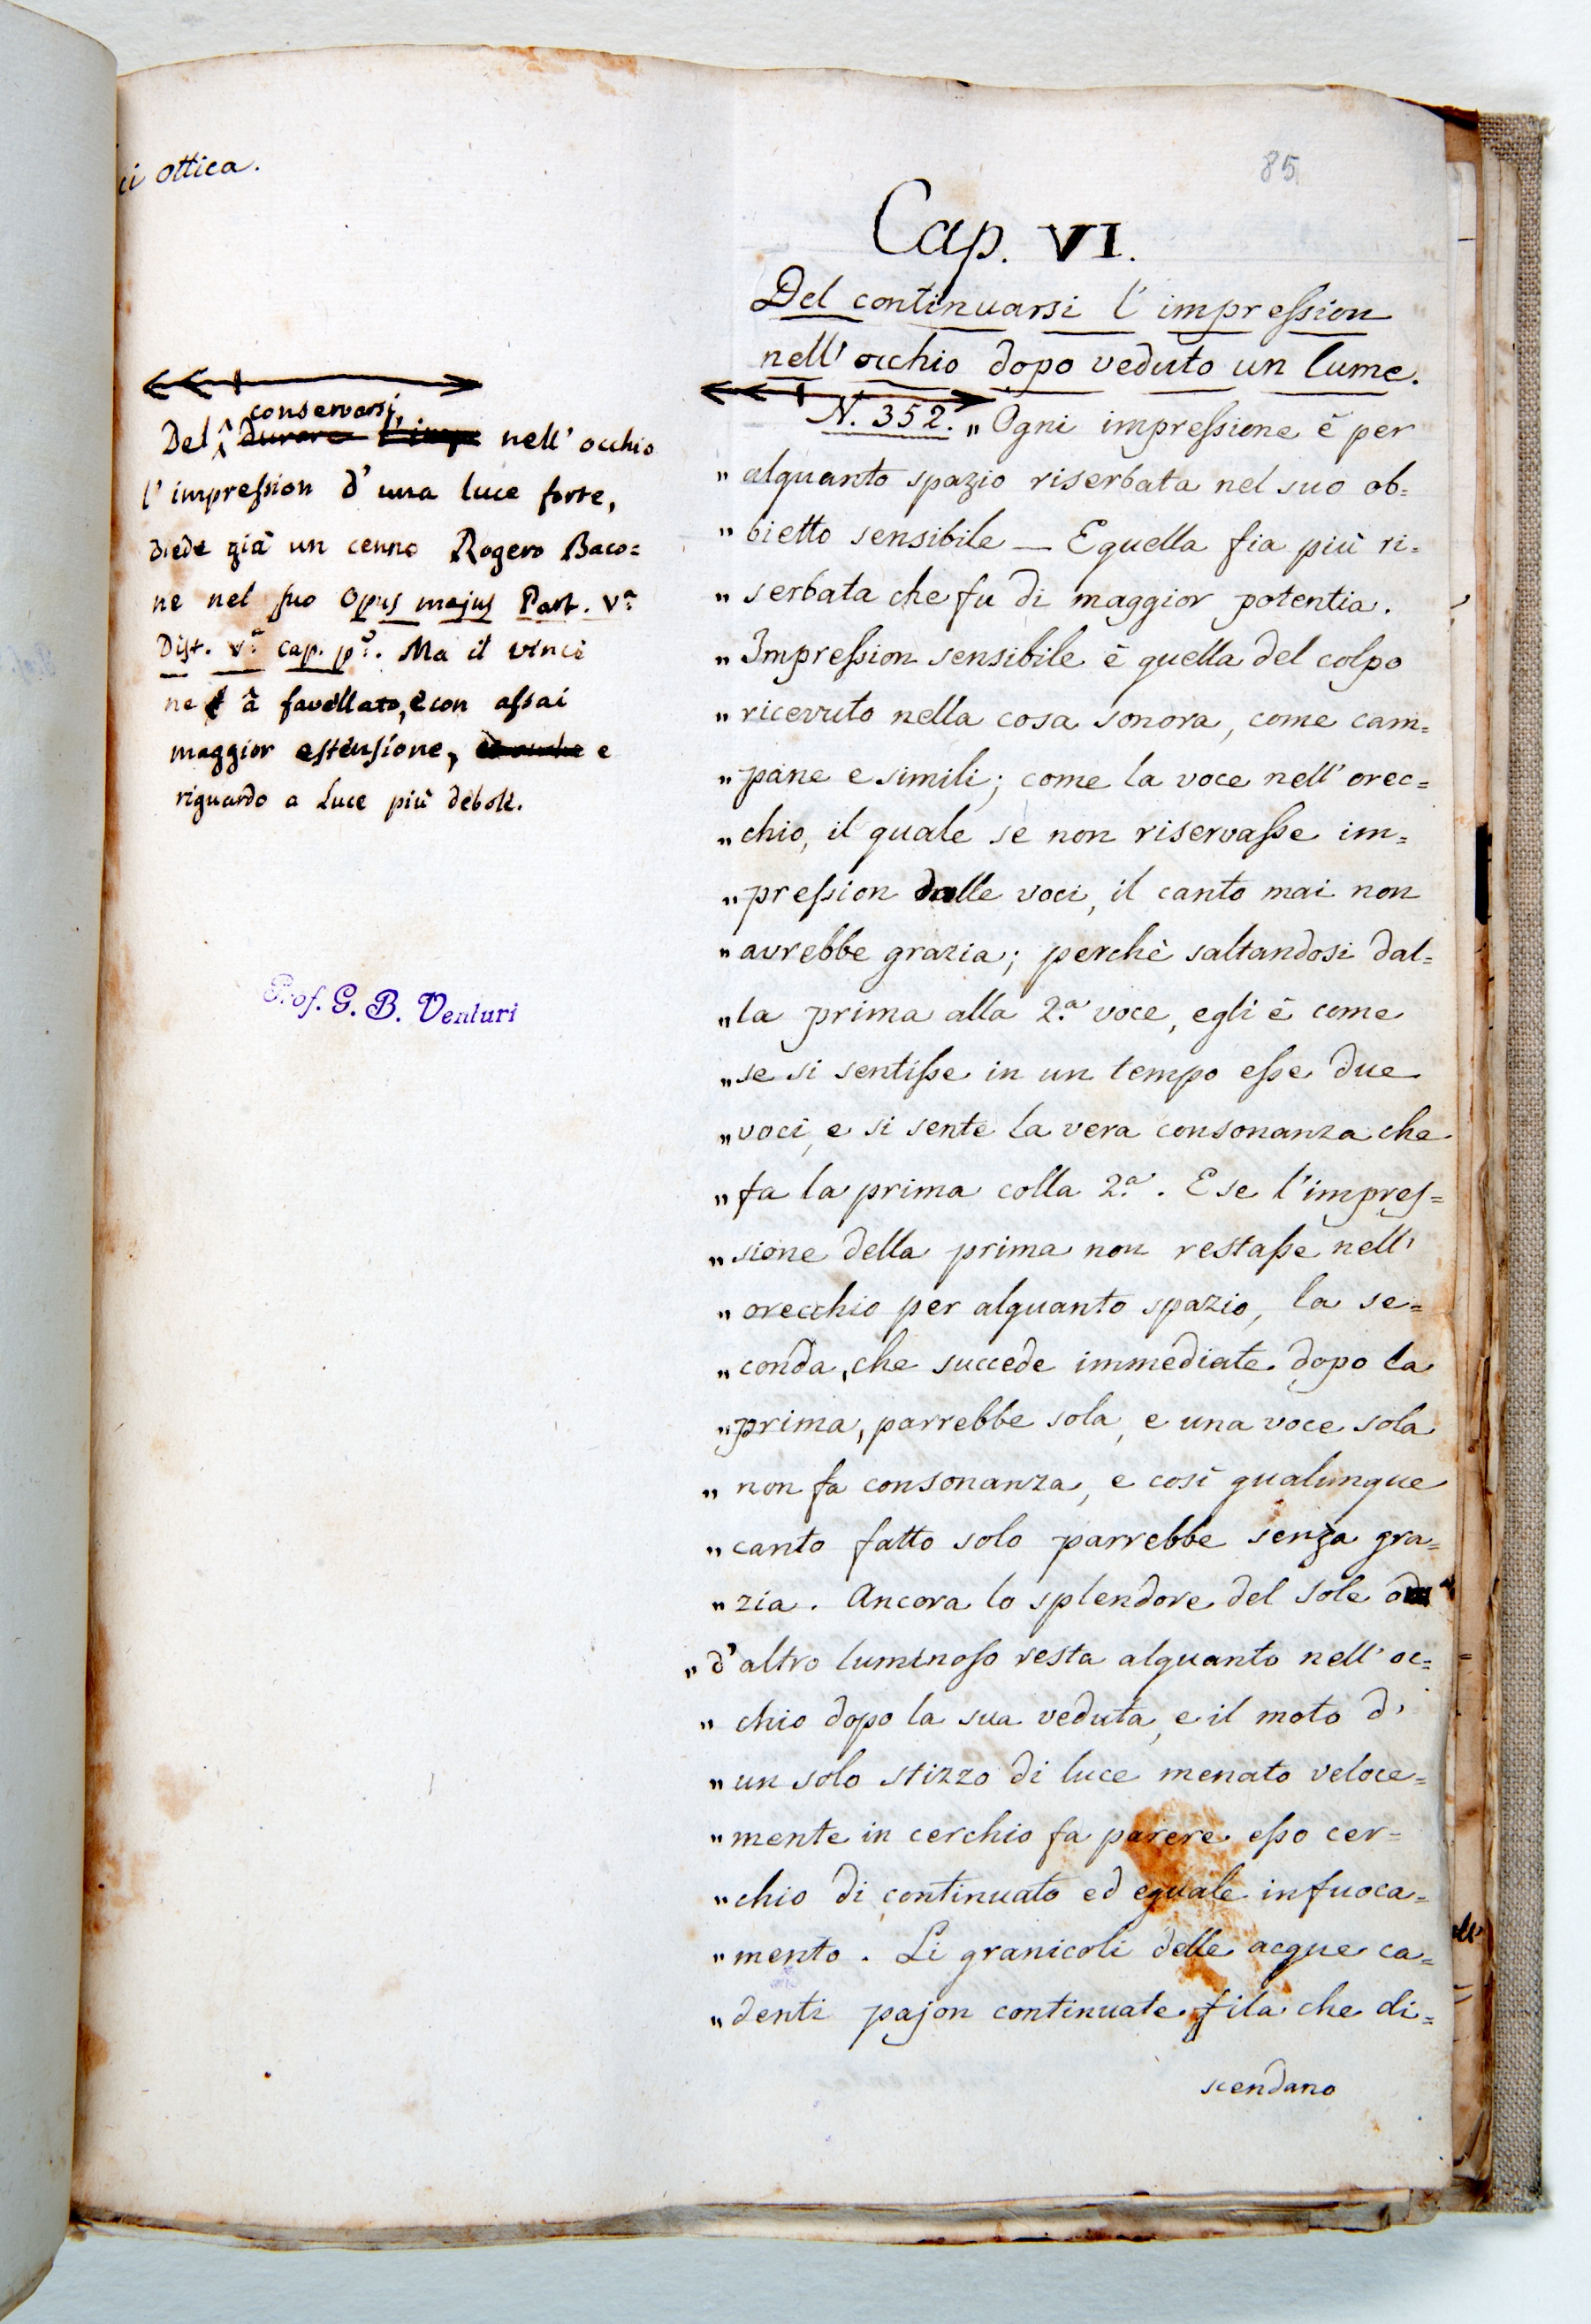 ci ottica.
85
Cap. VI.
Del continuarsi l'impression
nell'occhio dopo veduto un lume.
conservarsi
Del durare nell'occhio
l'impression d'una luce forte,
diede già un cenno Rogero Baco=
ne nel suo Opus majus Part. Vª
Dist. vª cap. pº. Ma il vinci
ne à favellato, e con assai
maggior estensione, e
riguardo a Luce più debole.
Prof. G. B. Venturi
N. 352. „ Ogni impressione è per
„ alquanto spazio riserbata nel suo ob=
„ bietto sensibile — E quella fia più ri=
„ serbata che fu di maggior potentia.
„ Impression sensibile è quella del colpo
„ ricevuto nella cosa sonora, come cam=
„ pane e simili; come la voce nell'orec=
„ chio, il quale se non riservasse im=
„ pression dalle voci, il canto mai non
„ avrebbe grazia; perchè saltandosi dal=
„ la prima alla 2.ª voce, egli è come
„ se si sentisse in un tempo esse due
„ voci, e si sente la vera consonanza che
„ fa la prima colla 2.ª. E se l'impres=
„ sione della prima non restasse nell'
„ orecchio per alquanto spazio, la se=
„ conda, che succede immediate dopo la
„ prima, parrebbe sola, e una voce sola
„ non fa consonanza, e così qualunque
„ canto fatto solo parrebbe senza gra=
„ zia. Ancora lo splendore del sole o
„ d'altro luminoso resta alquanto nell'oc=
„ chio dopo la sua veduta, e il moto d'
„ un solo stizzo di luce menato veloce=
„ mente in cerchio fa parere esso cer=
„ chio di continuato ed eguale infuoca=
„ mento. Li granicoli delle acque ca=
„ denti pajon continuate fila che di=
scendano